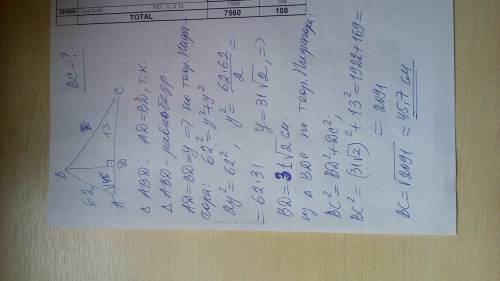 TOTAL 7560 7560 108
BC - ?
B
C
62
13
45°
A
D
Δ ABD: AD=BD, т.к.
Δ ABD - равнобедр.
AD=BD=y => по теор. Пифа-
гора: 62²=y²+y²
2y²=62², y² = 62·62/2 =
= 62·31 y=31√2, =>
BD=31√2 см.
из Δ BDC по теор. Пифагора:
BC²=BD²+DC².
BC²=(31√2)²+13²=1922+169=
= 2091
BC=√2091 ≈ 45,7 см